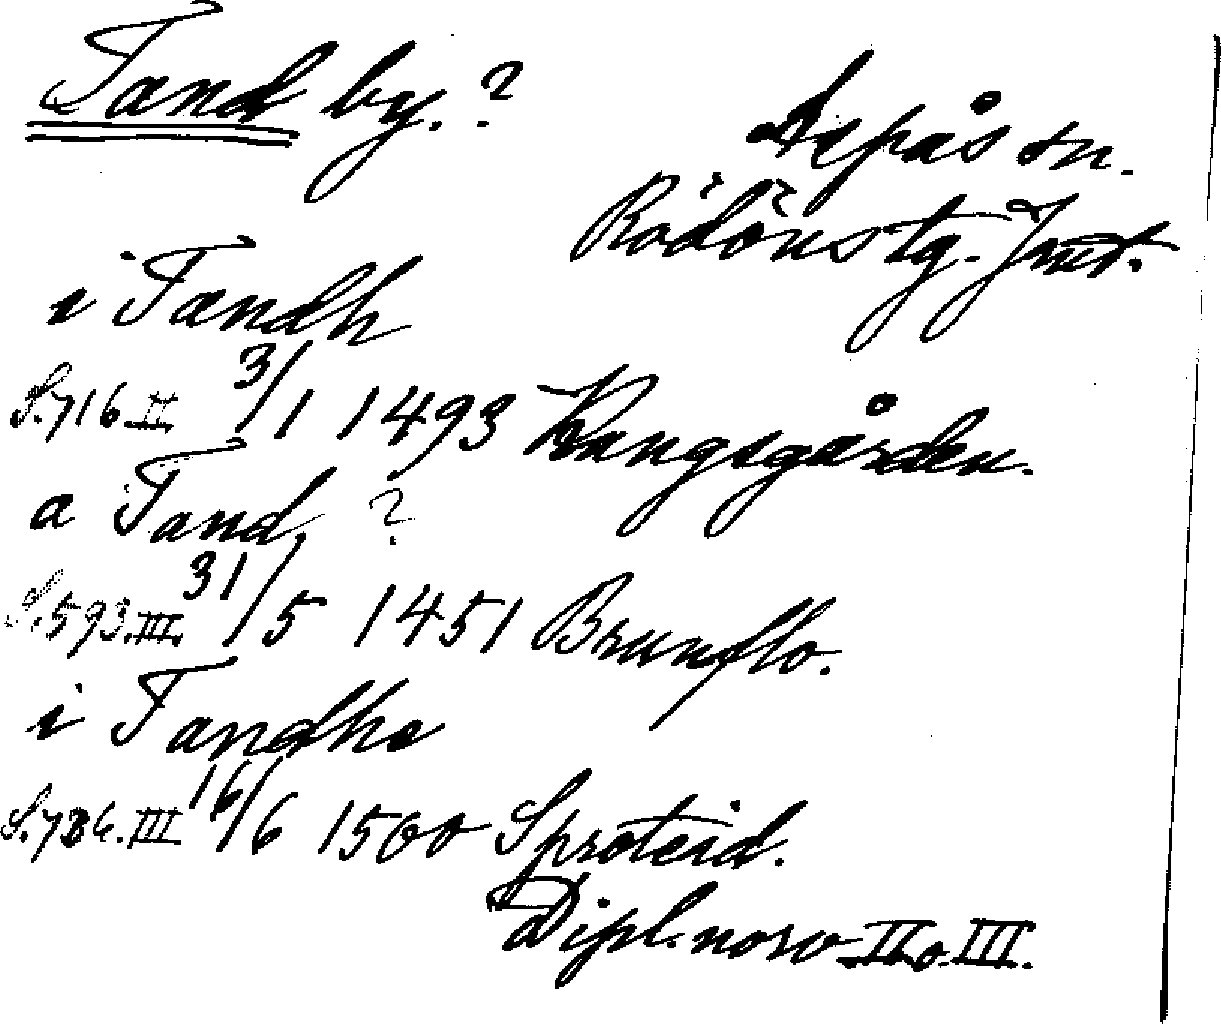 Tand by.?
Aspås sn.
Rödöns tg. Jmt.
i Tandh
S. 716. II 3/1 1493 Kungsgården.
a Tand, ?
S. 593. III. 31/5 1451 Brunflo.
i Tandhe
S. 786. III 16/6 1500 Sproteid.
Dipl. norv II o III.